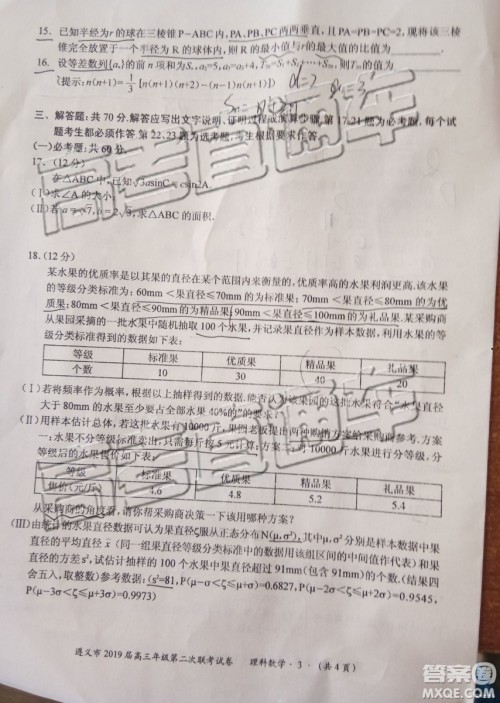 15. 已知半径为r的球在三棱锥P-ABC内,PA,PB,PC两两垂直,且PA=PB=PC=2,现将该三棱
锥完全放置于一个半径为R的球体内,则R的最小值与r的最大值的比值为
16. 设等差数列{aₙ}的前n项和为Sₙ,a₂=5
[提示:n(n+1)=1/3[n(n+1)(n+2)-(n-1)n(n+1)]]
三、解答题:共70分.解答应写出文字说明、证明过程或演算步骤.第17-21题为必考题,每个试
题考生都必须作答.第22、23题为选考题,考生根据要求作答.
(一)必考题:共60分.
17. (12分)
在△ABC中,已知√3asinC=csin2A.
(Ⅰ)求∠A的大小;
(Ⅱ)若a=√7,b=2√3,求△ABC的面积.
18. (12分)
某水果的优质率是以其果的直径在某个范围内来衡量的,优质率高的水果利润更高.该水果
的等级分类标准为:60mm<果直径≤70mm的为标准果;70mm<果直径≤80mm的为优
质果;80mm<果直径≤90mm的为精品果;90mm<果直径≤100mm的为礼品果.某采购商
从果园采摘的一批水果中随机抽取100个水果,并记录果直径作为样本数据,利用水果的等
级分类标准得到的数据如下表:
等级 标准果 优质果 精品果 礼品果
个数 10 30 40 20
(Ⅰ)若将频率作为概率,根据以上抽样得到的数据,能否认为该果园的这批水果符合“水果直径
大于80mm的水果至少要占全部水果40%的”的要求?
(Ⅱ)用样本估计总体,若这批水果有10000斤,果园老板提出两种购销方案给采购商参考:方案
一:水果不分等级标准,对10000斤水果按每斤5元计算;方案二:对10000斤水果分
等级后的水果售价如下表:
等级 标准果 优质果 精品果 礼品果
售价(元/斤) 4.6 4.8 5.2 5.4
从采购商的角度看,请你帮采购商决策一下该用哪种方案?
(Ⅲ)由统计的水果直径数据可以认为该果直径ζ服从正态分布N(μ,σ²),其中μ,σ²分别是样本数据
果直径的平均直径x̄(同一组果直径等级分类标准中的数据用该组区间的中间值作代表)和
果直径的方差s²,试估计抽样的100个水果中果直径超过91mm(包含91mm)的个数.(结果四
舍五入,取整数)参考数据:(s²=81,P(μ-σ<ζ≤μ+σ)=0.6827,P(μ-2σ<ζ≤μ+2σ)=0.9545,
P(μ-3σ<ζ≤μ+3σ)=0.9973)
遵义市2019届高三年级第二次联考试卷 理科数学·3·(共4页)
高考直通车
答案圈